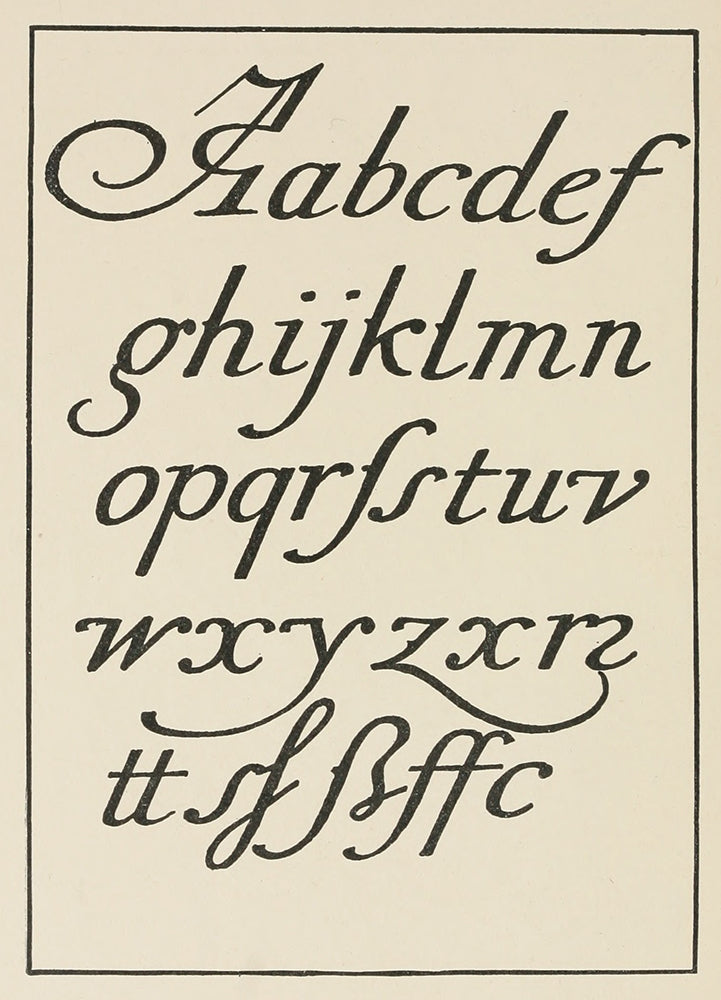 Aabcdef
ghijklmn
opqrſstuv
wxyzxrꝛ
ttsſßffc